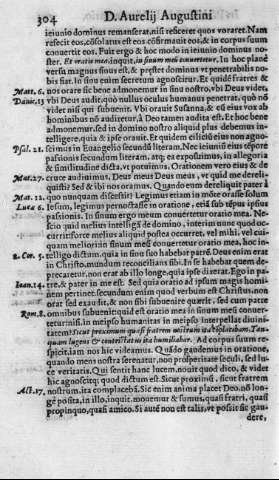 304 D. Aurelij Augustini
ieiunio dominus remanserat, nisi refeceret quos vocaret. Nam
refecit eos, cōsolatus est eos cōfirmauit eos, & in corpus suum
conuertit eos. Puit ergo & hoc modo in ieiunio dominus no-
ster. Et oratio mea, inquit, in sinu meo conuertetur. In hoc planè
versa magnus sinus est, & præstet dominus vt penetrabilis no-
bis fiat. Est enim secretum agnoscitur. Et quidē fratres &
Mat. 6. nos orare sic bene admonemur in sinu nostro, vbi Deus videt,
Danie. 13 vbi Deus audit, quo nullus oculus humanus penetrat, quò nō
videt nisi qui subuenit. Vbi orauit Susanna, & cùm eius vox ab
hominibus nō audiretur, à Deo tamen audita est. Et hoc bene
admonemur, sed in domino nostro aliquid plus debemus in-
telligere, quia & ipse orauit. Et quidem eius non agno-
Psal. 21. scimus in Euangelio secundū literam. Nec ieiuniū eius tēpore
passionis secundum literam, atq; ea exposuimus, in allegoria
& similitudine dicta, vt potuimus. Orationem verò eius & de
Mat. 27. cruce audiuimus, Deus meus Deus meus, vt quid me dereli-
quisti? Sed & ibi nos eramus. Quando enim dereliquit pater à
Mat. 12. quo nunquam discessit? Legimus etiam in mōte orasse solum
Luca 6. Iesum, legimus pernoctasse in oratione, etiā sub tēpus ipsius
passionis. In sinum ergo meum conuertetur oratio mea. Ne-
scio quid melius intelligā de domino, interim nunc quod oc-
currit, fortè melius aliquid postea occurret, vel mihi, vel cui-
quam meliori: in sinum meū conuertetur oratio mea, hoc in-
2. Cor. 5. telligo dictum, quia in sinu suo habebat patrē. Deus enim erat
in Christo, mundum reconcilians sibi. In se habebat quem de-
precaretur, non erat ab illo longè, quia ipse dixerat, Ego in pa-
Ioan. 14. tre, & pater in me est. Sed quia oratio ad ipsum magis homi-
nem pertinet: secundum enim quod verbum est Christus, non
orat sed exaudit, & non sibi subueniri quærit, sed cum patre
Rom. 8. omnibus subuenit: quid est oratio mea in sinum meū conuer-
tetur: nisi, in meipso humanitas in meipso interpellat diuini-
tatem? Sicut proximum quasi fratrem nostrum ita cōplacebam. Tan-
quam lugens & contristatus ita humiliabar. Ad corpus suum re-
spicit, iam nos hic videamus. Quādo gaudemus in oratione,
quando mens nostra serenatur, non prosperitate seculi, sed lu-
ce veritatis. Qui sentit hanc lucem, nouit quod dico, & videt
hic agnoscitq; quod dictum est. Sicut proximū, sicut fratrem
Act. 17. nostrum, ita complacebā. Sic enim anima placet Deo, nō lon-
gè posita, in illo, inquit, mouemur & sumus, quasi fratri, quasi
propinquo, quasi amico. Si autē non est talis, vt possit sic gau-
dere,